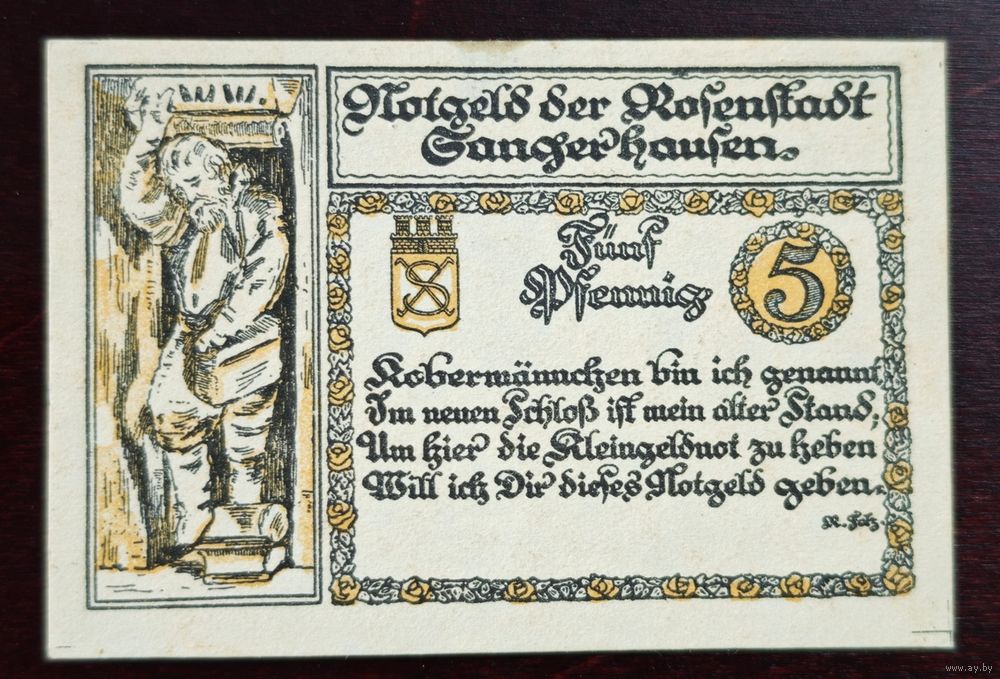 Notgeld der Rosenstadt
Sangerhausen.
S
Fünf
Pfennig
5
Kobermännchen bin ich genannt
Im neuen Schloß ist mein alter Stand;
Um hier die Kleingeldnot zu heben
Will ich Dir dieses Notgeld geben.
www.ay.by